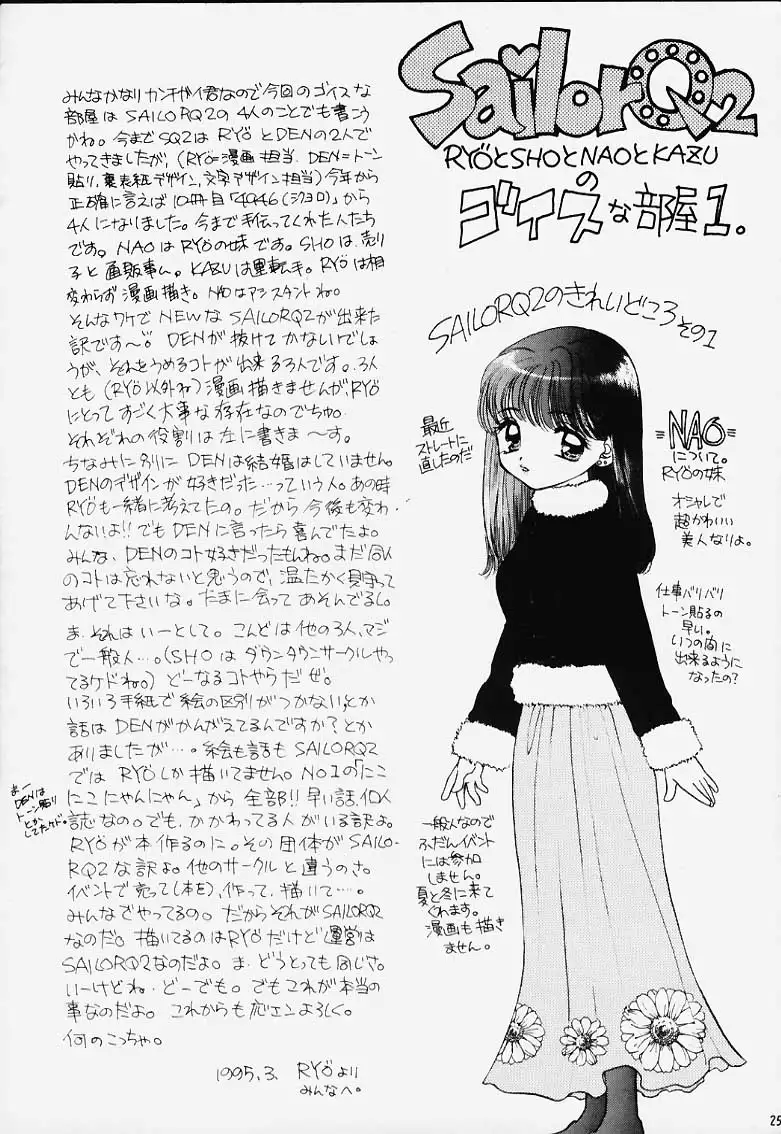 SailorQ2
RYÖとSHOとNAOとKAZU
の
ゴイスな部屋1.
みんなかなりカンチガイ君なので今回のゴイスな
部屋はSAILORQ2の4人のことでも書こう
かね。今までSQ2はRYÖとDENの2人で
やってきましたが、(RYÖ=漫画担当、DEN=トーン
貼り、裏表紙デザイン、文字デザイン担当)今年から
正確に言えば10冊目「4946(シクヨロ)」から
4人になりました。今まで手伝ってくれた人たち
です。NAOはRYÖの妹です。SHOは、売り
子と通販事ム。KAZUは運転手。RYÖは相
変わらず漫画描き。NAOはアシスタントね。
そんなワケでNEWなSAILORQ2が出来た
訳です〜。DENが抜けてかないけでしょ
うが、それをうめるコトが出来る3人です。3人
とも(RYÖ以外ね)漫画描きませんが、RYÖ
にとってすごく大事な存在なのでちゅ。
それぞれの役割は左に書きま〜す。
ちなみに別にDENは結婚はしていません。
DENのデザインが好きだった…っていう人。あの時
RYÖも一緒に考えてたの。だから今後も変わ
んないよ!!でもDENに言ったら喜んでたよ。
みんな、DENのコト好きだったもんね。まだ同人
のコトは忘れないと思うので、温たかく見守って
あげて下さいな。たまに会ってあそんでるし。
ま、それはいーとして。こんどは他の3人、マジ
で一般人…。(SHOはダウンタウンサークルやっ
てるケドね。)どーなるコトやらだぜ。
いろいろ手紙で絵の区別がつかない、とか
話はDENがかんがえてるんですか?とか
ありましたが…。絵も話もSAILORQ2
ではRYÖしか描いてません。NO1の「にこ
にこにゃんにゃん」から全部!!早い話、個人
誌なの。でも、かかわってる人がいる訳よ。
RYÖが本作るのに。その団体がSAILO-
RQ2な訳よ。他のサークルと違うのさ。
イベントで売って(本を)、作って、描いて…。
みんなでやってるの。だからそれがSAILORQ2
なのだ。描いてるのはRYÖだけど運営は
SAILORQ2なのだよ。ま、どうとっても同じさ。
いーけどね、どーでも。でもこれが本当の
事なのだよ。これからも応エンよろしく。
何のこっちゃ。
1995.3. RYÖより
みんなへ。
まー
DENは
トーン貼り
とか
してたケド。
SAILORQ2のきれいどころその1
最近
ストレートに
直したのだ
=NAO=
について。
RYÖの妹
オシャレで
超かわいい
美人なりよ。
仕事バリバリ
トーン貼るの
早い。
いつの間に
出来るように
なったの?
一般人なので
ふだんイベント
には参加
しません。
夏と冬に来て
くれます。
漫画も描き
ません。
25